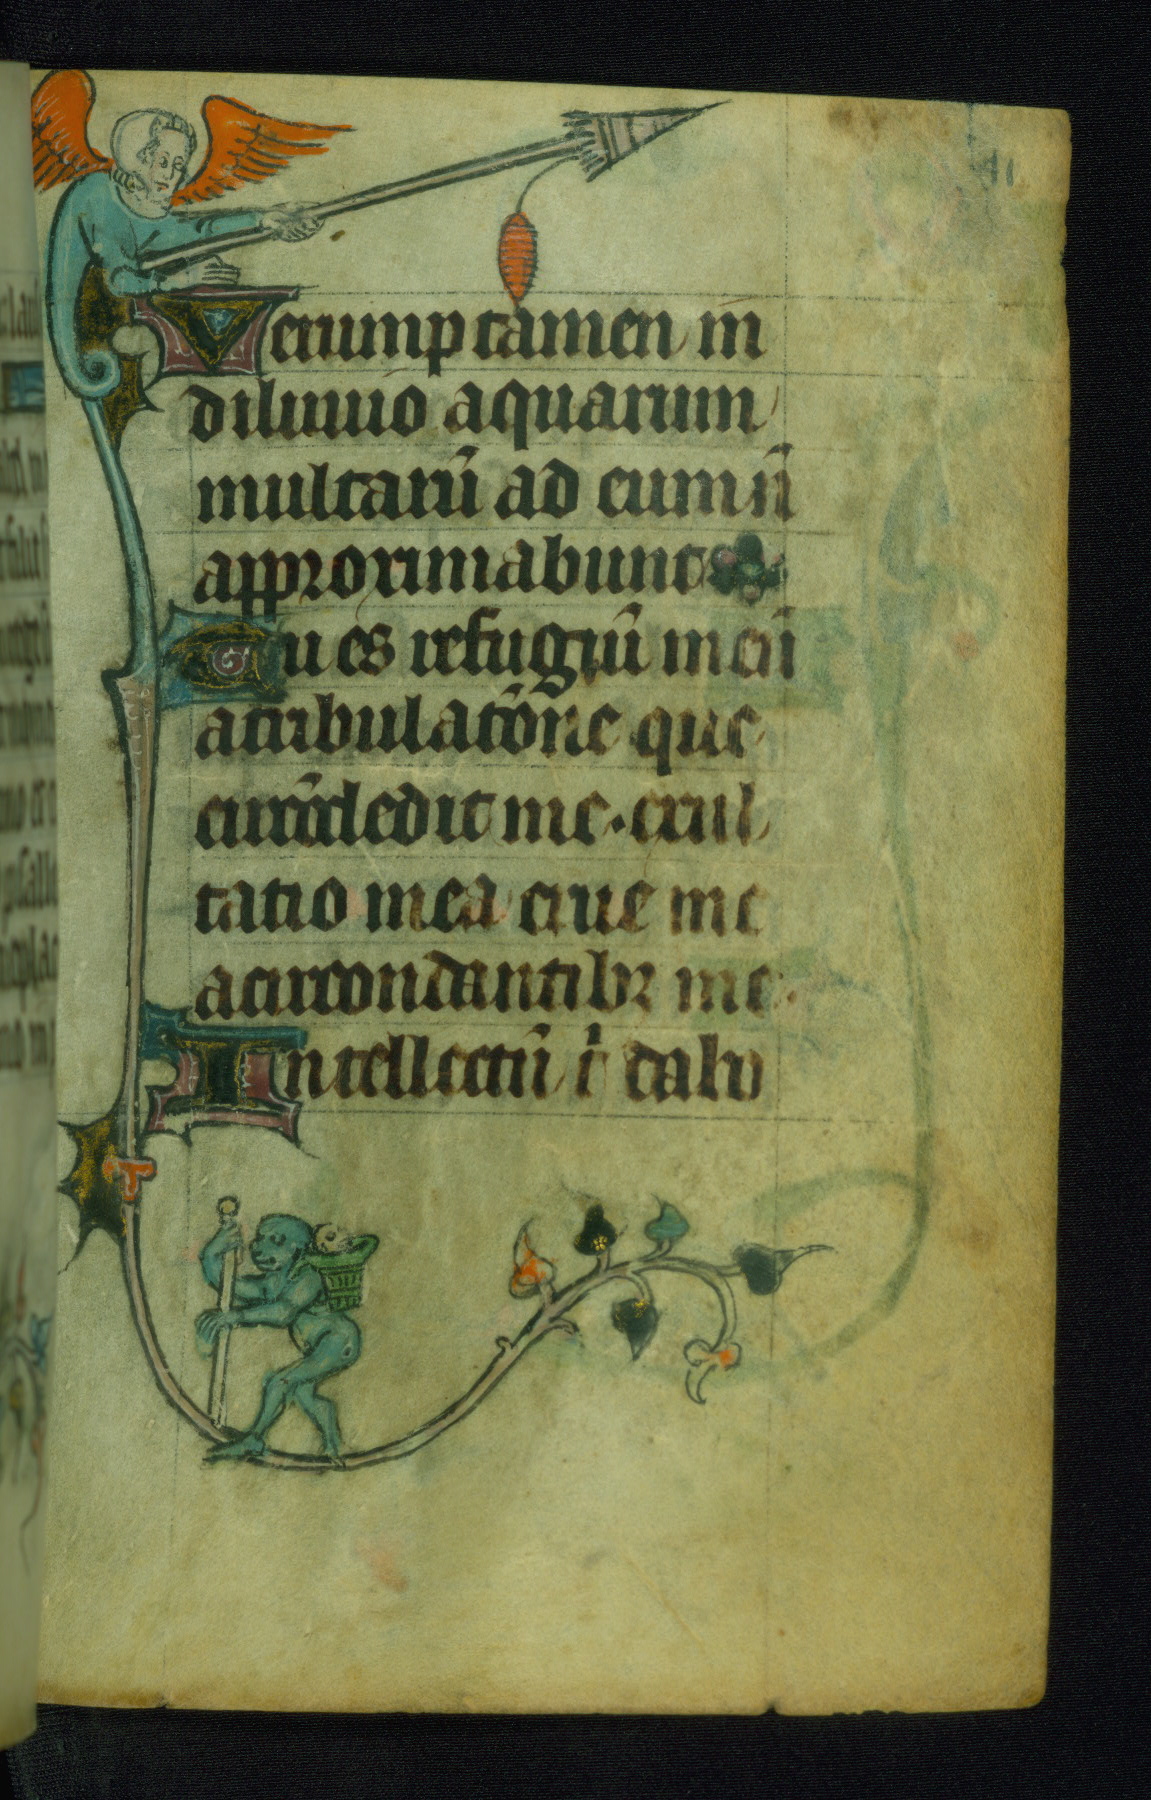 Verumptamen in
diluuio aquarum
multarū ad eum n̄
approximabunt
Tu es refugiū meū
a tribulatōne que
circūdedit me. exul
tatio mea erue me
a circondantibꝫ me.
Intellectū tͥ dabo